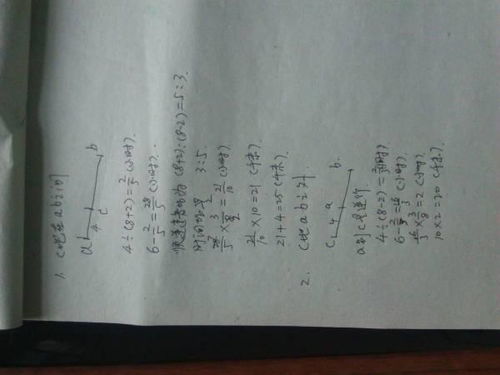 1. C地在ab之间
a 4 c b
4÷(8+2)=2/5(小时)
6-2/5=28/5(小时).
顺逆速度的比(8+2):(8-2)=5:3.
时间的比 3:5
28/5×3/8=21/10(小时)
21/10×10=21(千米)
21+4=25(千米)
2. C地ab之外
c 4 a b
a到c是逆行
4÷(8-2)=2/3(小时)
6-2/3=16/3(小时)
16/3×3/8=2(小时)
10×2=20(千米)